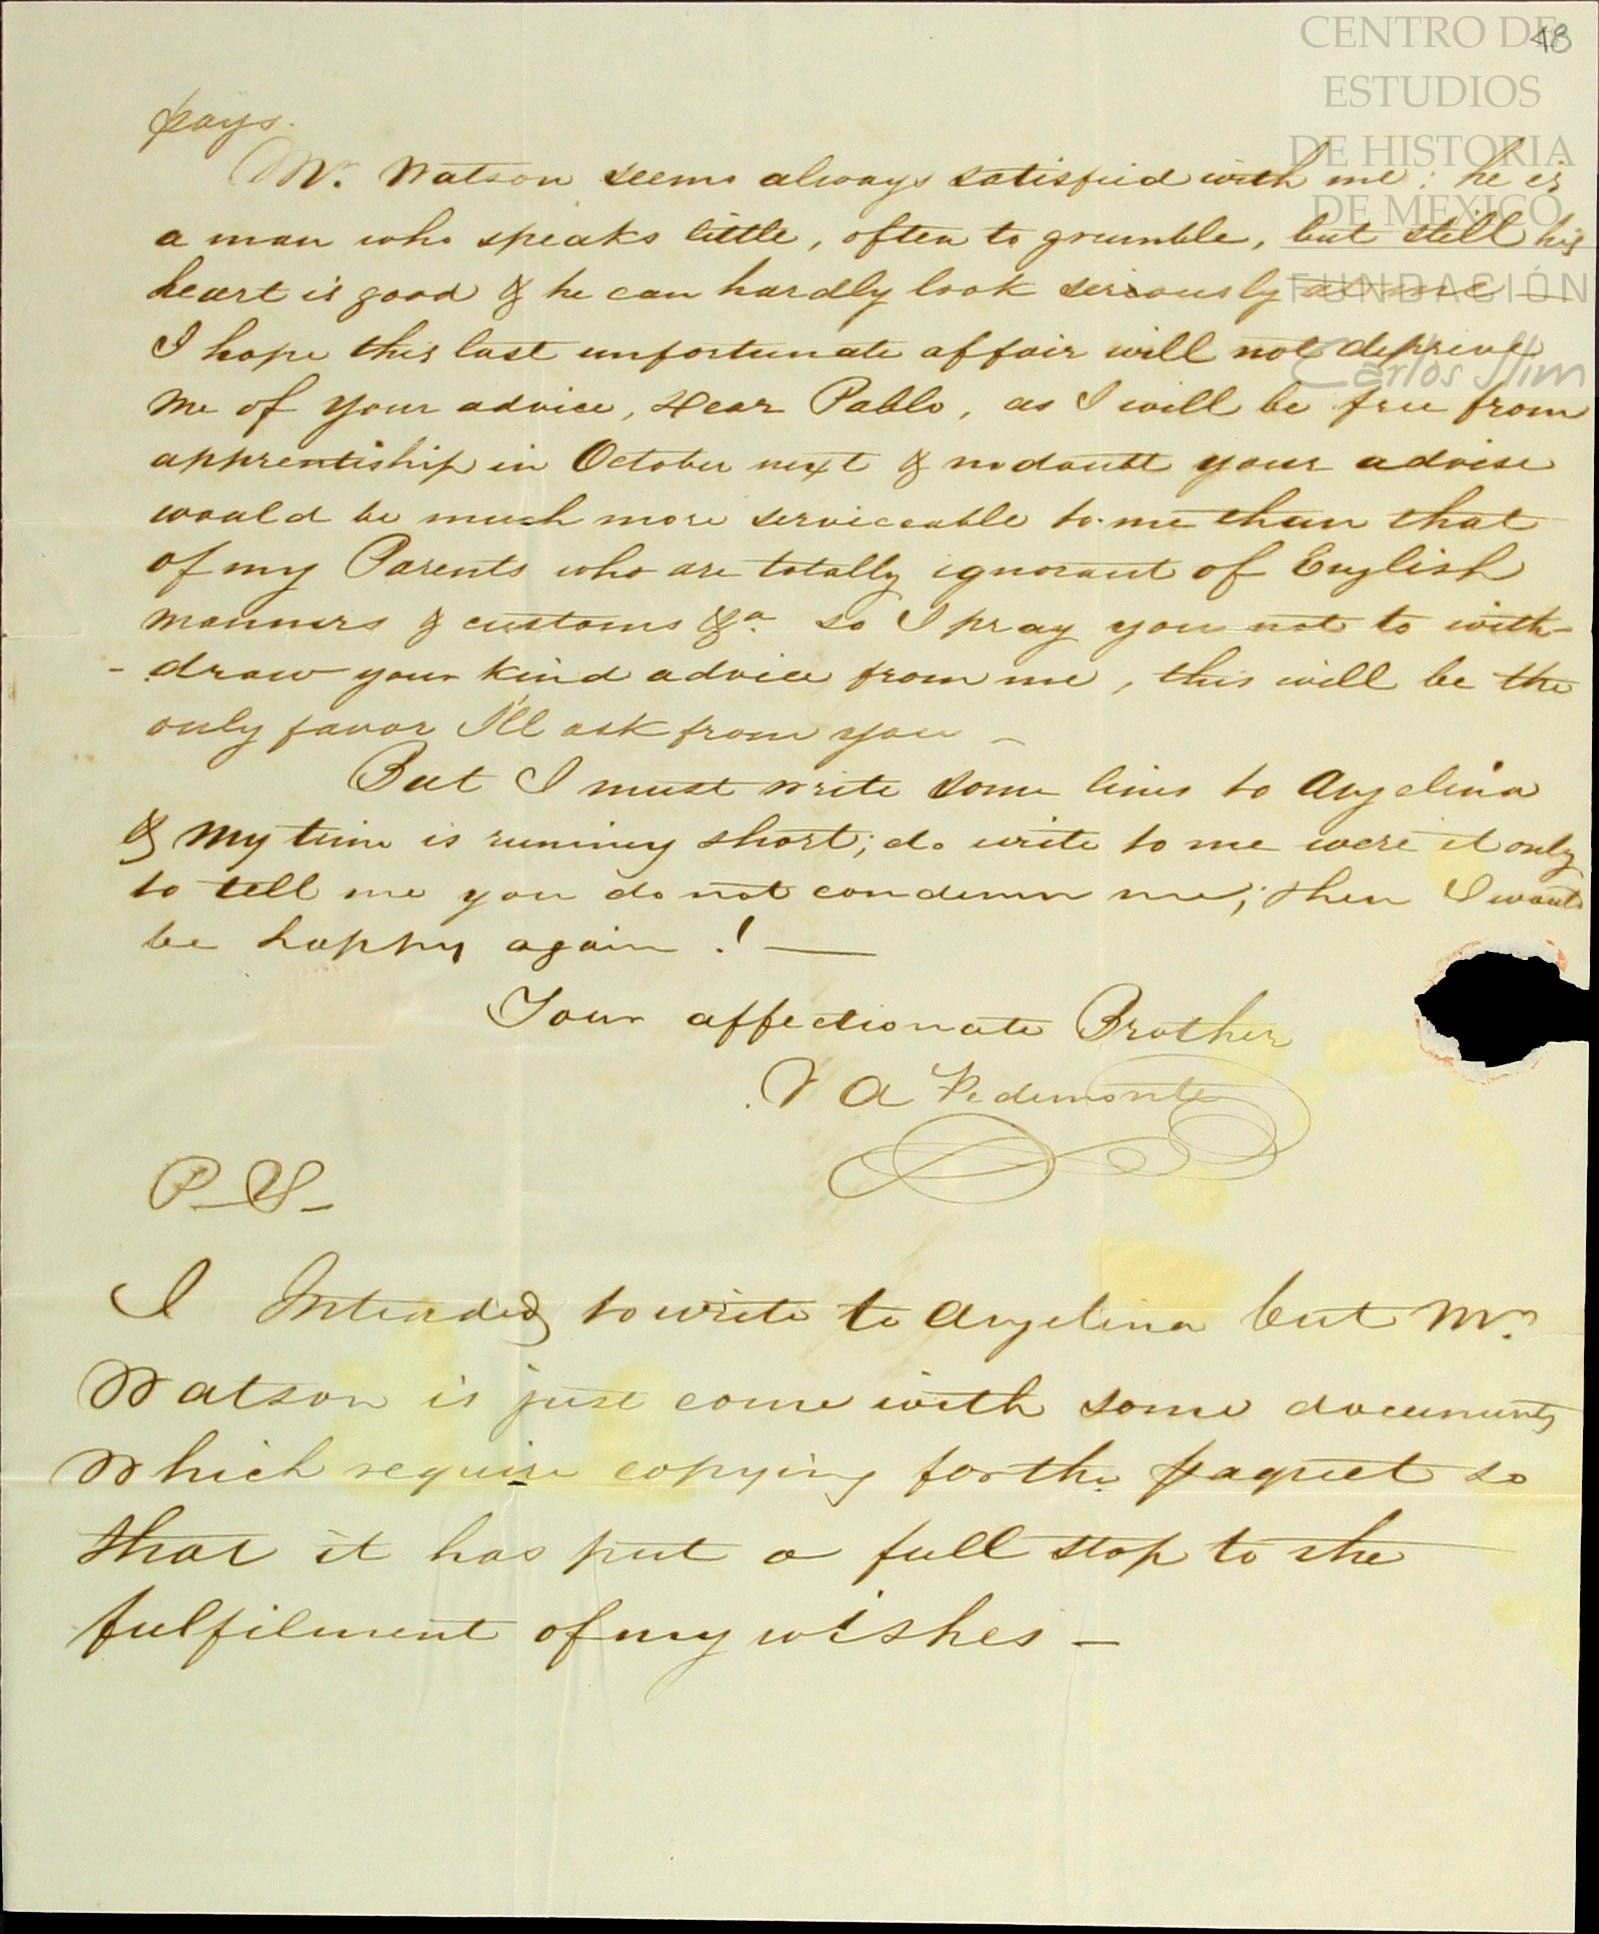 48
CENTRO DE
ESTUDIOS
DE HISTORIA
DE MÉXICO
FUNDACIÓN
Carlos Slim
pays.
Mr. Watson seems always satisfied with me; he is
a man who speaks little, often to grumble, but still his
heart is good & he can hardly look seriously at me —
I hope this last unfortunate affair will not deprive
me of your advice, Dear Pablo, as I will be free from
apprentiship in October next & no doubt your advise
would be much more serviceable to me than that
of my Parents who are totally ignorant of English
manners & customs &a. so I pray you not to with-
- draw your kind advice from me, this will be the
only favor I'll ask from you —
But I must write some lines to Angelina
& my time is runing short; do write to me were it only
to tell me you do not condemn me; then I would
be happy again ! —
Your affectionate Brother
V A Pedemonte
P. S.
I Intended to write to Angelina but Mr.
Watson is just come with some documents
which require copying for the paquet so
that it has put a full stop to the
fulfilment of my wishes —